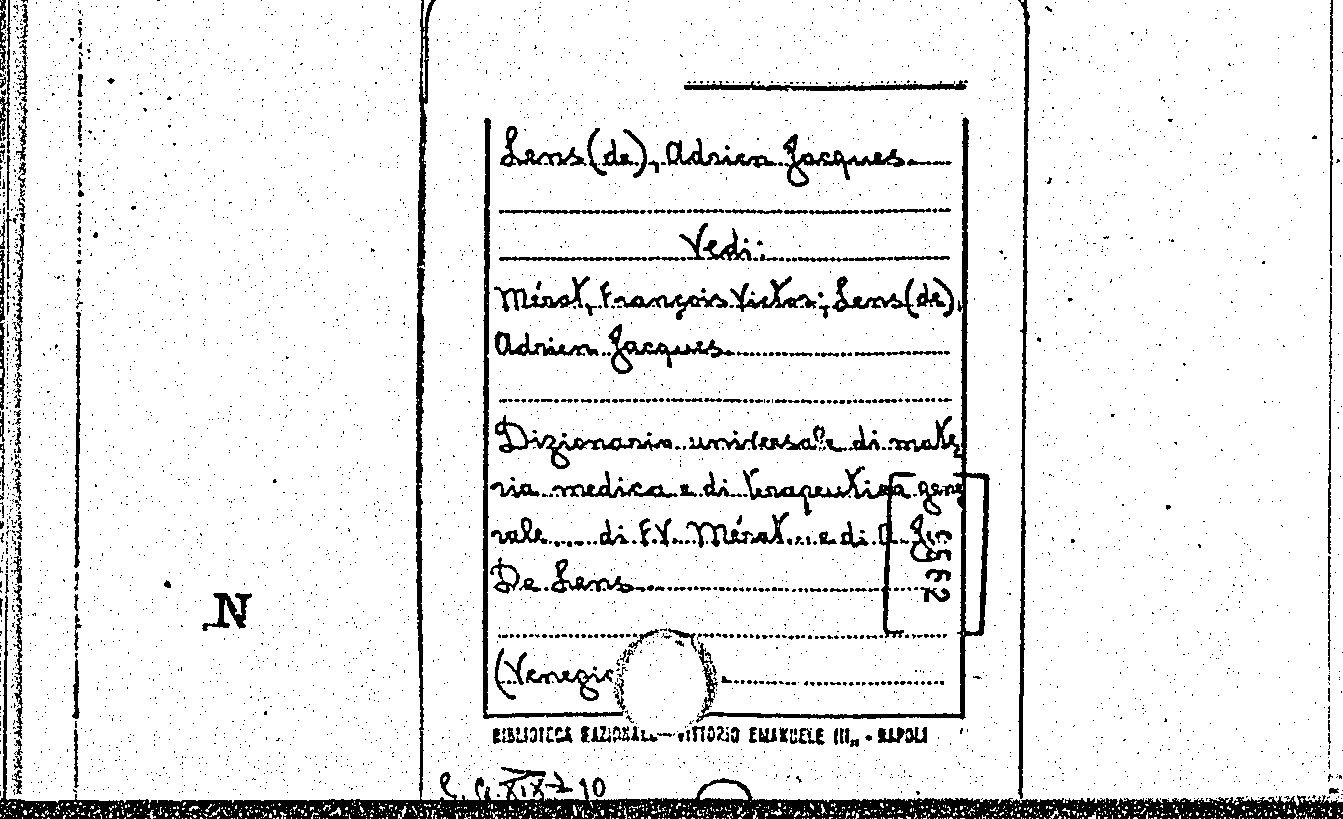 Lens (de), Adrien Jacques.
Vedi:
Mérat, François Victor; Lens (de),
Adrien Jacques.
Dizionario universale di mate
ria medica e di terapeutica gene
rale.... di F.V. Mérat... e di A. J.
De Lens.
(Venezia
BIBLIOTECA NAZIONALE "VITTORIO EMANUELE III„ - NAPOLI
N